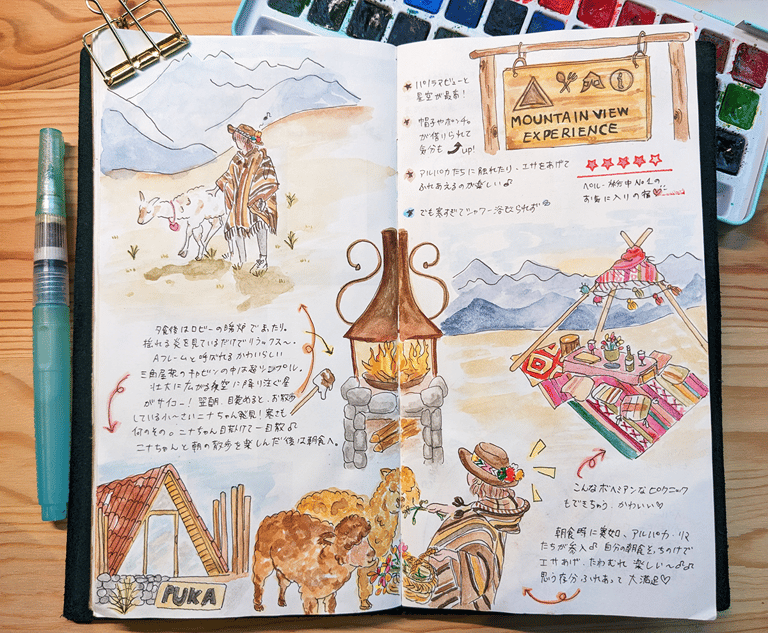 パノラマビューと
星空が最高!
帽子やポンチョ
が借りられて
気分も up!
アルパカたちに触れたり、エサをあげて
ふれあえるのが楽しい♫
でも寒すぎてシャワー浴びられず
MOUNTAIN VIEW
EXPERIENCE
ペルー旅行中No.1の
お気に入りの宿♡
夕食後はロビーの暖炉でまったり。
揺れる炎を見ているだけでリラックス〜。
Aフレームと呼ばれるかわいらしい
三角屋根のキャビンの中は超シンプル。
壮大に広がる夜空に降り注ぐ星
がサイコー!翌朝、目覚めると、お散歩
している小〜さいニナちゃん発見!寒さも
何のその。ニナちゃん目がけて一目散♫
ニナちゃんと朝の散歩を楽しんだ後は朝食へ。
こんなボヘミアンなピクニック
もできちゃう。かわいい♡
朝食時に突如、アルパカ・リマ
たちが参入♫ 自分の朝食そっちのけで
エサあげ、たわむれ 楽しい〜♫
思う存分ふれあって 大満足♡
PUKA